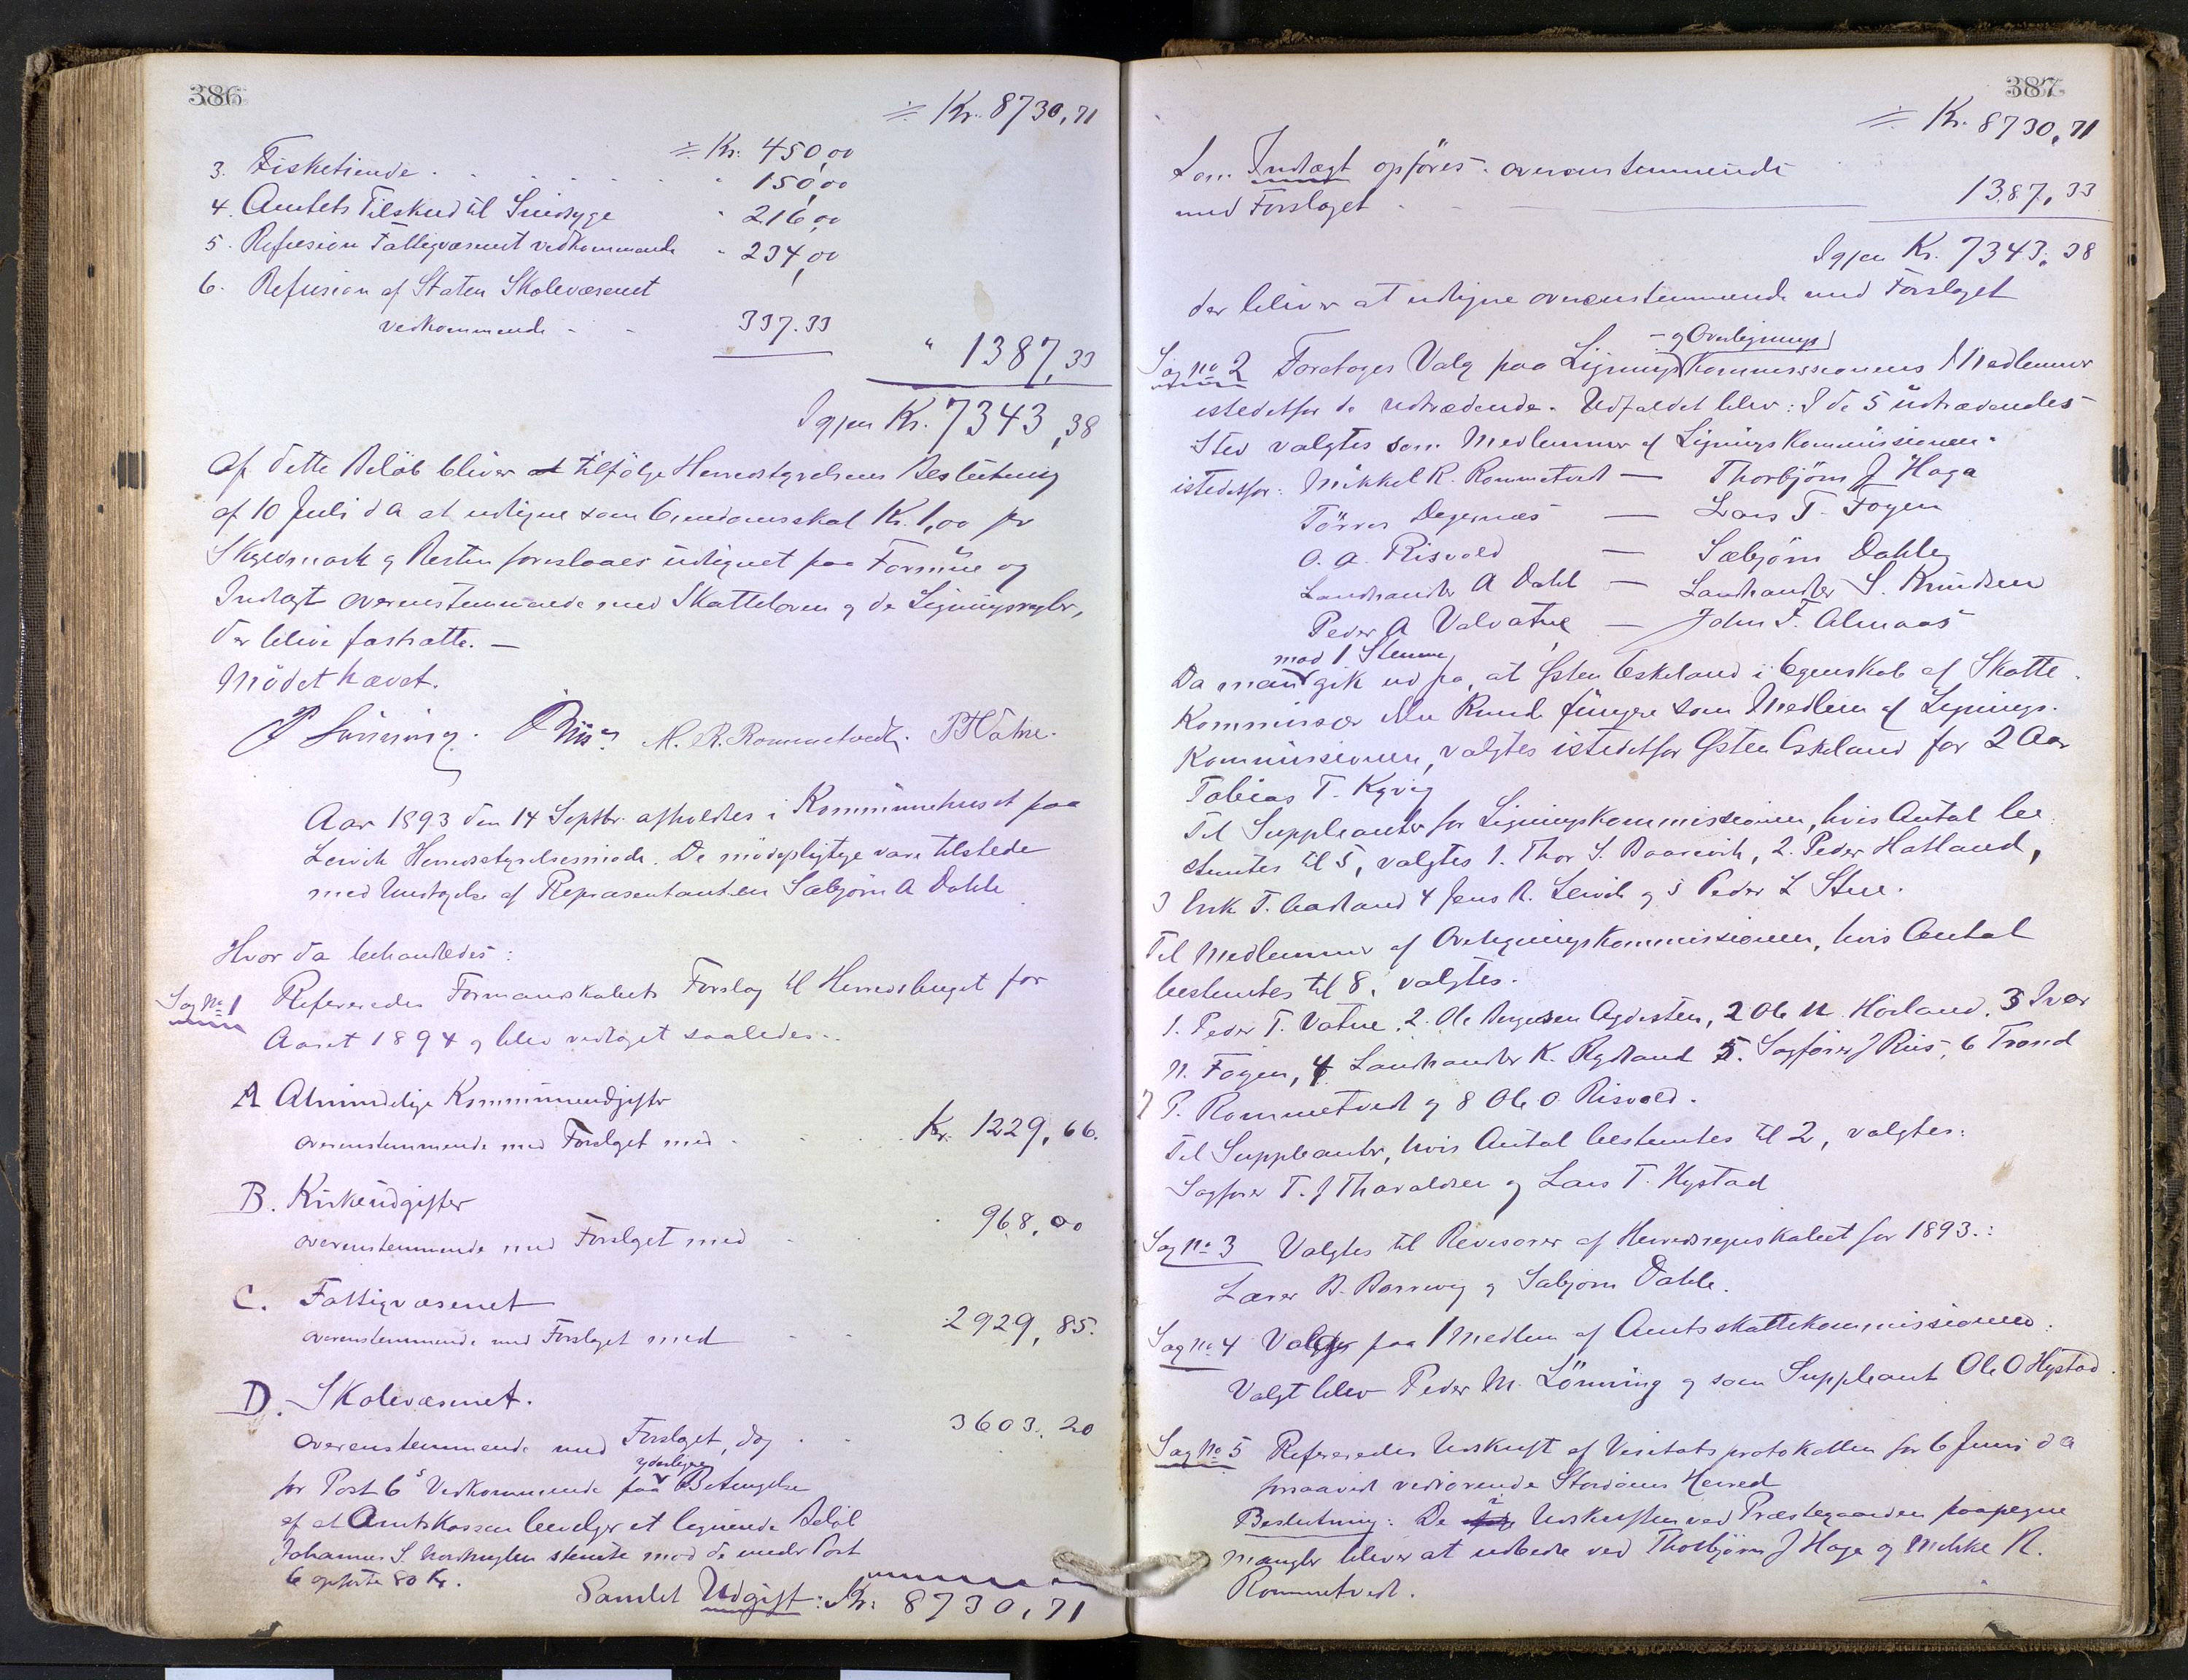 386
÷ Kr. 8730,71
÷ Kr. 450,00
3. Fisketiende . . . . . . " 150,00
4. Amtets Tilskud til Sindsyge " 216,00
5. Refusion Fattigvæsenet vedkommende " 234,00
6. Refusion af Staten Skolevæsenet
vedkommende - - 337.33
" 1387,33
Igjen Kr. 7343,38
Af dette Beløb bliver at tilfølge Herredstyrelsens Beslutning
af 10 Juli d A at udligne som Eiendomsskat Kr. 1,00 pr
Skyldmark og Resten foreslaaes udlignet paa Formue og
Indtægt overenstemmende med Skatteloven og de Ligningsregler,
der blive fastsatte. —
Mødet hævet.
P Lönning. J Riis M. R. Rommetvedt. P T Vatne.
Aar 1893 den 14 Septbr. afholdtes i Kommunehuset paa
Lervik Herredsstyrelsesmøde. De mødepligtige vare tilstede
med Undtagelse af Repræsentanten Sæbjørn A Dahle
Hvor da behandledes:
Sag No 1 Refereredes Formandskabets Forslag til Herredsbuget for
Aaret 1894 og blev vedtaget saaledes..
A Almindelige Kommuneudgifter
overenstemmende med Forslaget med - - - Kr. 1229,66.
B. Kirkeudgifter
overenstemmende med Forslaget med - - 968,00
C. Fattigvæsenet
overenstemmende med Forslaget med - - 2929,85.
D. Skolevæsenet.
overenstemmende med Forslaget, dog . . 3603,20
for Post 6s Vedkommende paa yderligere Betingelse
af at Amtskassen bevelger et lignende Beløb
Johannes S. stemte mod de under Post
6 opførte 80 Kr.
Samlet Udgift: Kr. 8730,71
387
÷ Kr. 8730,71
Som Indtægt opføres overenstemmende
med Forslaget - — 1387,33
Igjen Kr. 7343,38
der bliver at udligne overenstemmende med Forslaget
Sag No 2 Foretoges Valg paa Lignings - og Overlignings Kommissionens Medlemmer
istedetfor de udtrædende. Udfaldet blev: I de 5 udtrædendes
Sted valgtes som Medlemmer af Ligningskommissionen.
istedetfor: Mikkel R. Rommetvedt — Thorbjørn J Haga
Tørres Digernæs — Lars T. Føyen
O. A. Risvold — Sæbjørn Dahle
Landhandler A Dahl — Landhandler S. Knudsen
Peder A Valvatne — John F. Almaas
Da man mod 1 Stemme gik ud fra, at Østen Eskeland i Egenskab af Skatte
Kommissær ikke kunde fungere som Medlem af Lignings-
Kommissionen, valgtes istedetfor Østen Eskeland for 2 Aar
Tobias T. Kyvig
Til Suppleanter for Ligningskommissionen, hvis Antal be
stemtes til 5, valgtes 1. Thor S. Baarevik, 2. Peder Hatland,
3 Erik T. Aadland 4 Jens A. Lervik og 5 Peder L Stue.
Til Medlemmer af Overligningskommissionen, hvis Antal
bestemtes til 8, valgtes.
1. Peder T. Vatne, 2. Ole Agdesten, 2 Ole N. Hörland, 3 Ivar
N. Føyen, 4 Landhandler K. Rydland 5. Sagfører J Riis, 6 Trond
7 P. Rommetvedt og 8 Ole O. Risvold.
Til Suppleanter, hvis Antal bestemtes til 2, valgtes:
Sagfører T. J Tharaldsen og Lars T. Hystad
Sag No 3 Valgtes til Revisorer af Herredsregnskabet for 1893.:
Lærer B. og Sæbjørn Dahle.
Sag No 4 Valges paa 1 Medlem af Amtsskattekommissionen.
Valgt blev Peder M. Lönning og som Suppleant Ole O Hystad.
Sag No 5 Refereredes Udskrift af Visitatsprotokollen for 6 Juni d A
forsaavidt vedrørende Stordøens Herred
Beslutning: De i Udskriften ved Præstegaarden paapegne
mangler bliver at udbedre ved Thorbjørn J Haga og Mikkel R.
Rommetvedt.